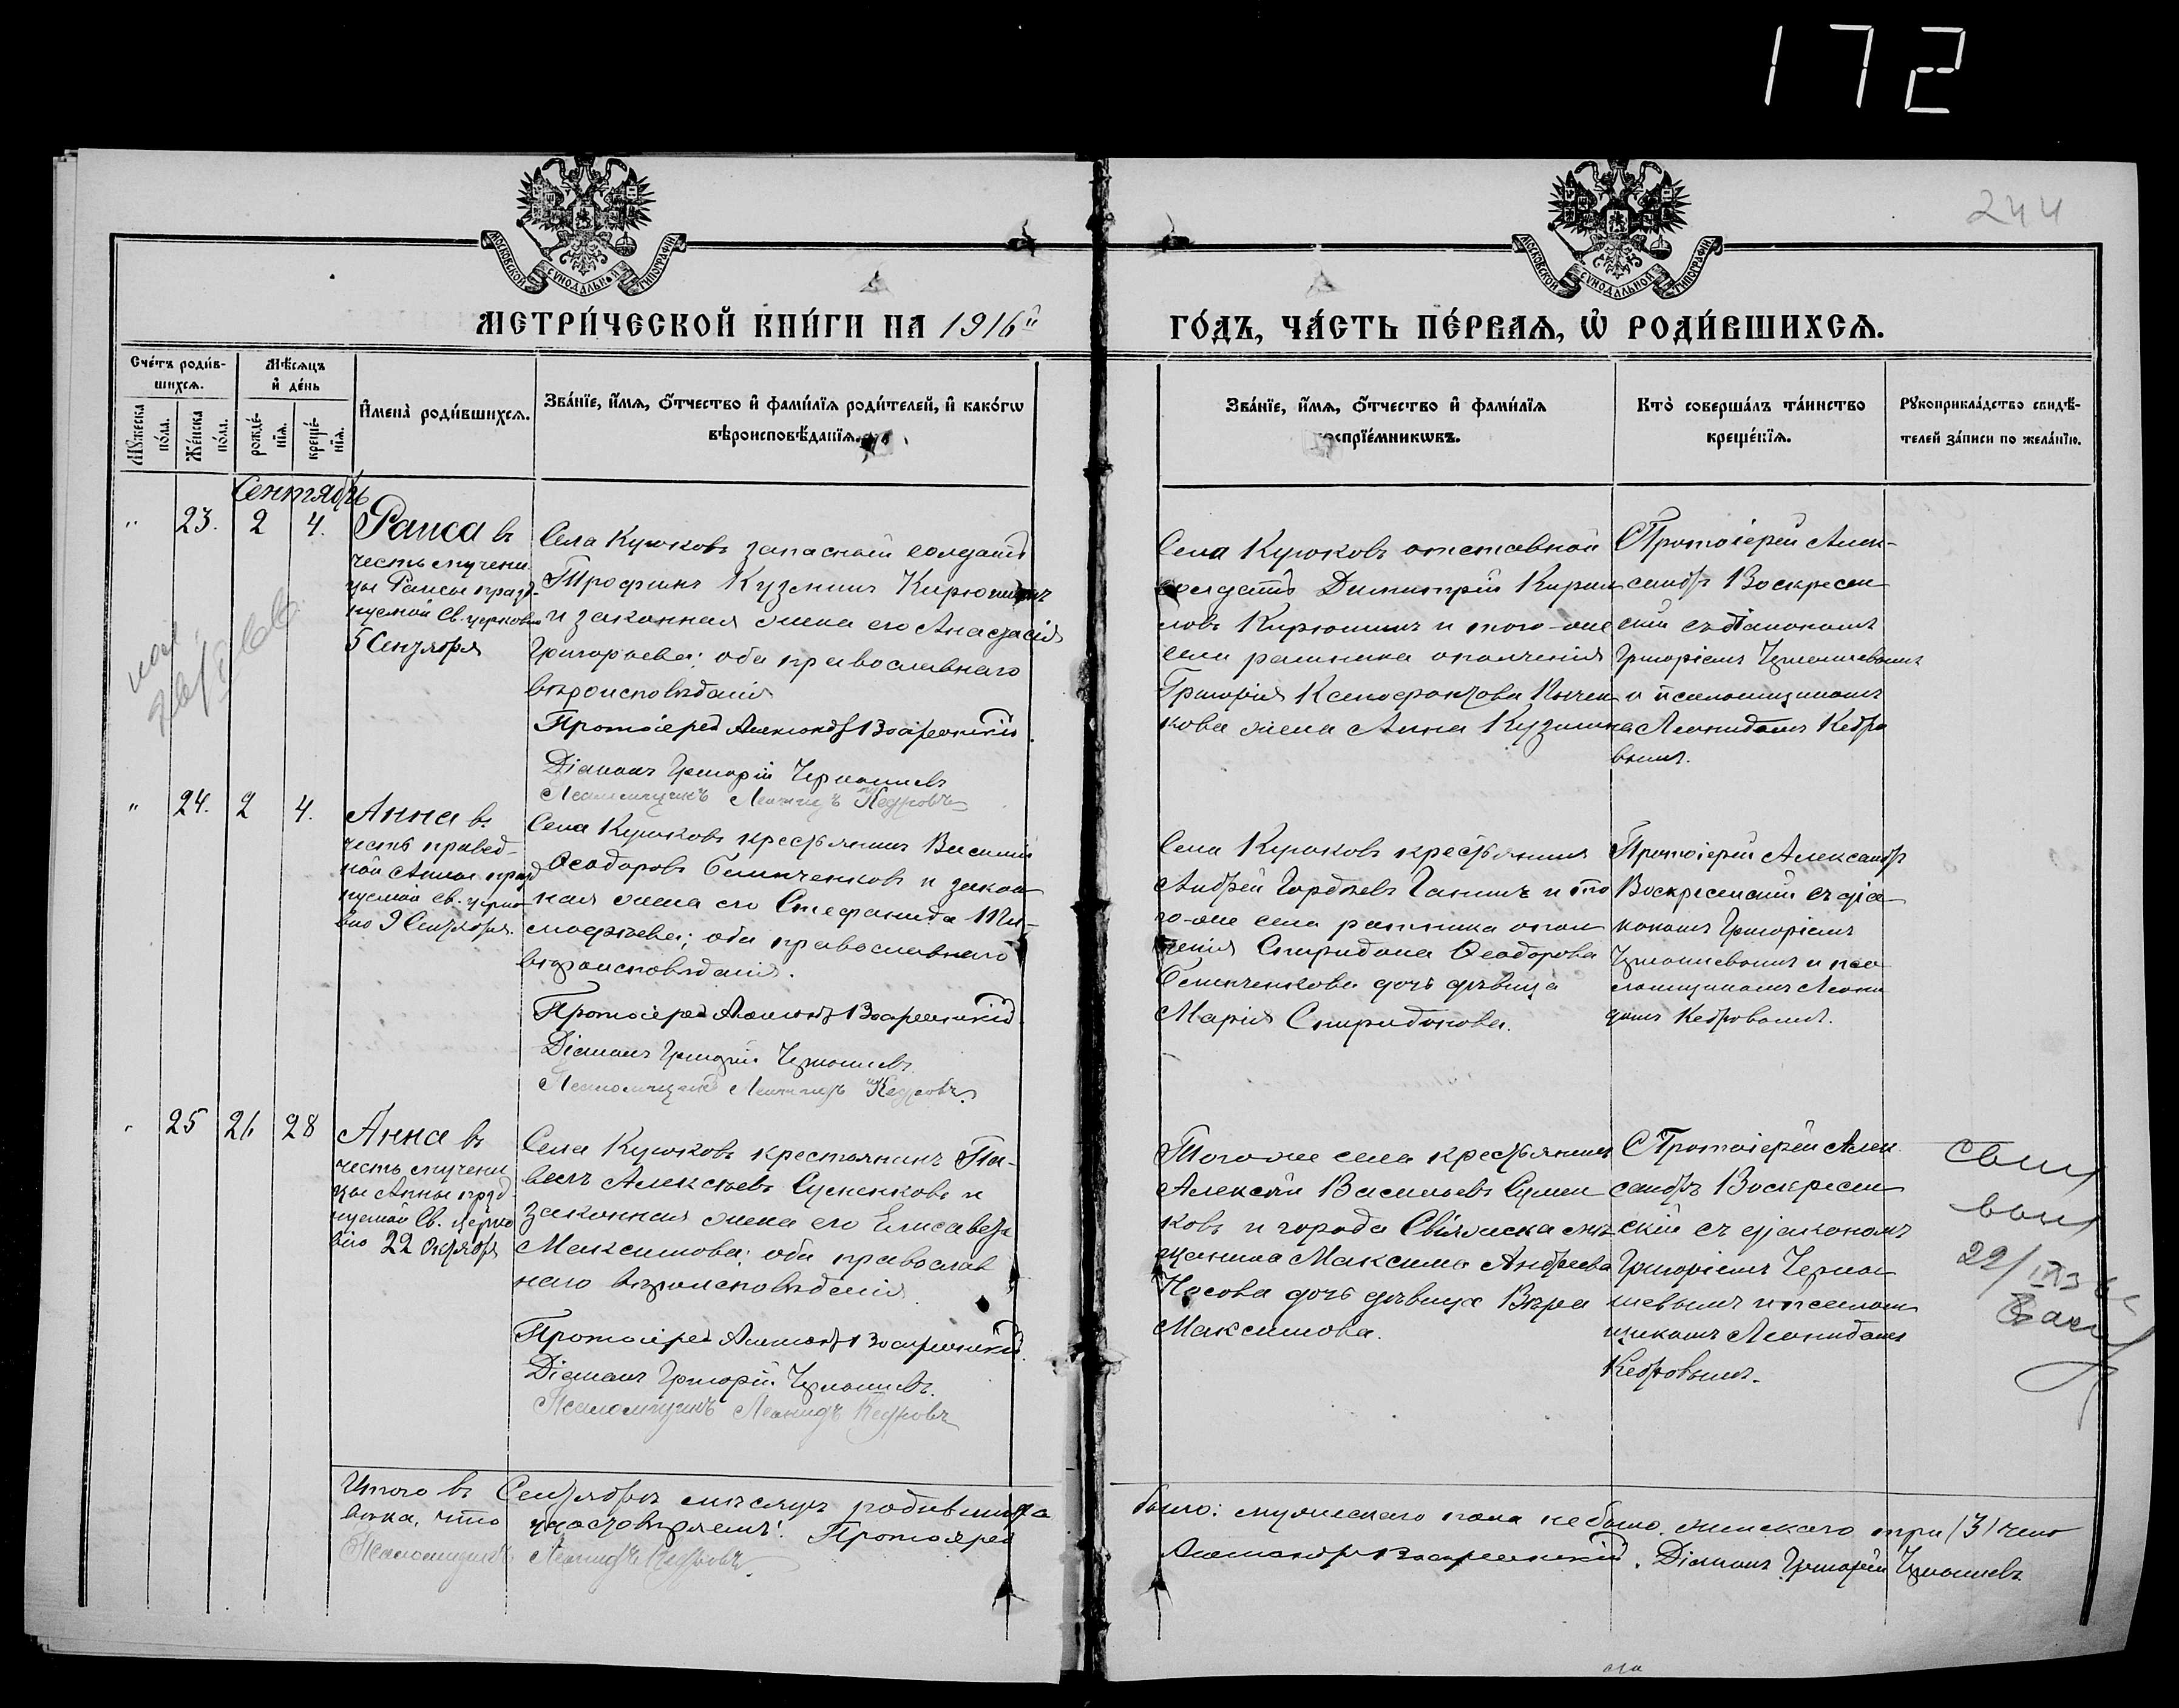 172
244
МОСКОВСКОЙ СѴНОДАЛЬНОЙ ТИПОГРАФІИ
МОСКОВСКОЙ СѴНОДАЛЬНОЙ ТИПОГРАФІИ
МЕТРИ́ЧЕСКОЙ КНИ́ГИ НА 1916й
ГО́ДЪ, ЧА́СТЬ ПЕ́РВАѦ, Ѡ҆ РОДИ́ВШИХСѦ.
Сче́тъ роди́в-
шихсѧ.
Мѣ́сѧцъ
и҆ де́нь
Мꙋ́жеска
по́ла.
Же́нска
по́ла.
рожде́-
нїѧ.
креще́-
нїѧ.
И҆мена̀ роди́вшихсѧ.
Зва́нїе, и҆́мѧ, ѻ҆́тчество и҆ фами́лїѧ роди́телей, и҆ како́гѡ
вѣроисповѣ́данїѧ.
Зва́нїе, и҆́мѧ, ѻ҆́тчество и҆ фами́лїѧ
воспрїе́мникѡвъ.
Кто̀ соверша́лъ та́инство
креще́нїѧ.
Рꙋкоприкла́дство свидѣ́-
телей за́писи по жела́нїю.
Сентябрь
" 23. 2 4.
Раиса въ
честь мучени
цы Раисы празд-
нуемой Св. церковью
5 Сентября
Села Куюковъ запасный солдатъ
Трофимъ Кузьминъ Кирюшинъ
и законная жена его Анастасія
Григорьева; оба православнаго
вѣроисповѣданія
Протоіерей Александръ Воскресенскій.
Діаконъ Григорій Чернышевъ
Псаломщикъ Леонидъ Кедровъ
Села Куюковъ отставной
солдатъ Димитрій Кирил
ловъ Кирюшинъ и того-же
села ратника ополченія
Григорія Ксенофонтова
кова жена Анна Кузьмина
Протоіерей Алек-
сандръ Воскресен
скій съ діакономъ
Григоріемъ Чернышевымъ
и псаломщикомъ
Леонидомъ Кедро
вымъ.
" 24. 2 4.
Анна въ
честь правед-
ной Анны празд
нуемой св. церко
вію 9 Сентября.
Села Куюковъ крестьянинъ Василій
Ѳеодоровъ и закон
ная жена его Стефанида Ти-
моѳеева; оба православнаго
вѣроисповѣданія.
Протоіерей Александръ Воскресенскій.
Діаконъ Григорій Чернышевъ.
Псаломщикъ Леонидъ Кедровъ.
Села Куюковъ крестьянинъ
Андрей Гордѣевъ Ганинъ и то
го-же села ратника опол
ченія Спиридона Ѳеодорова
дочь дѣвица
Марія Спиридонова.
Протоіерей Александръ
Воскресенскій съ діа-
кономъ Григоріемъ
Чернышевымъ и пса
ломщикомъ Леони
домъ Кедровымъ.
" 25 26 28
Анна въ
честь мучени
цы Анны празд
нуемой Св. Церко
вію 22 Октября
Села Куюковъ крестьянинъ Па-
велъ Алексѣевъ Суменковъ и
законная жена его Елисавета
Максимова; оба православ
наго вѣроисповѣданія
Протоіерей Александръ Воскресенскій.
Діаконъ Григорій Чернышевъ.
Псаломщикъ Леонидъ Кедровъ
Того-же села крестьянинъ
Алексѣй Васильевъ Сумен
ковъ и города Свіяжска мѣ
щанина Максима Андреева
Носова дочь дѣвица Вѣра
Максимова.
Протоіерей Алек
сандръ Воскресен
скій съ діакономъ
Григоріемъ Черны
шевымъ и псалом
щикомъ Леонидомъ
Кедровымъ.
22/IX
Итого въ Сентябрѣ мѣсяцѣ родившихся
было: мужескаго пола не было, женскаго три /3/ чело
вѣка, что удостовѣряемъ: Протоіерей
Александръ Воскресенскій. Діаконъ Григорій Чернышевъ.
Псаломщикъ Леонидъ Кедровъ.